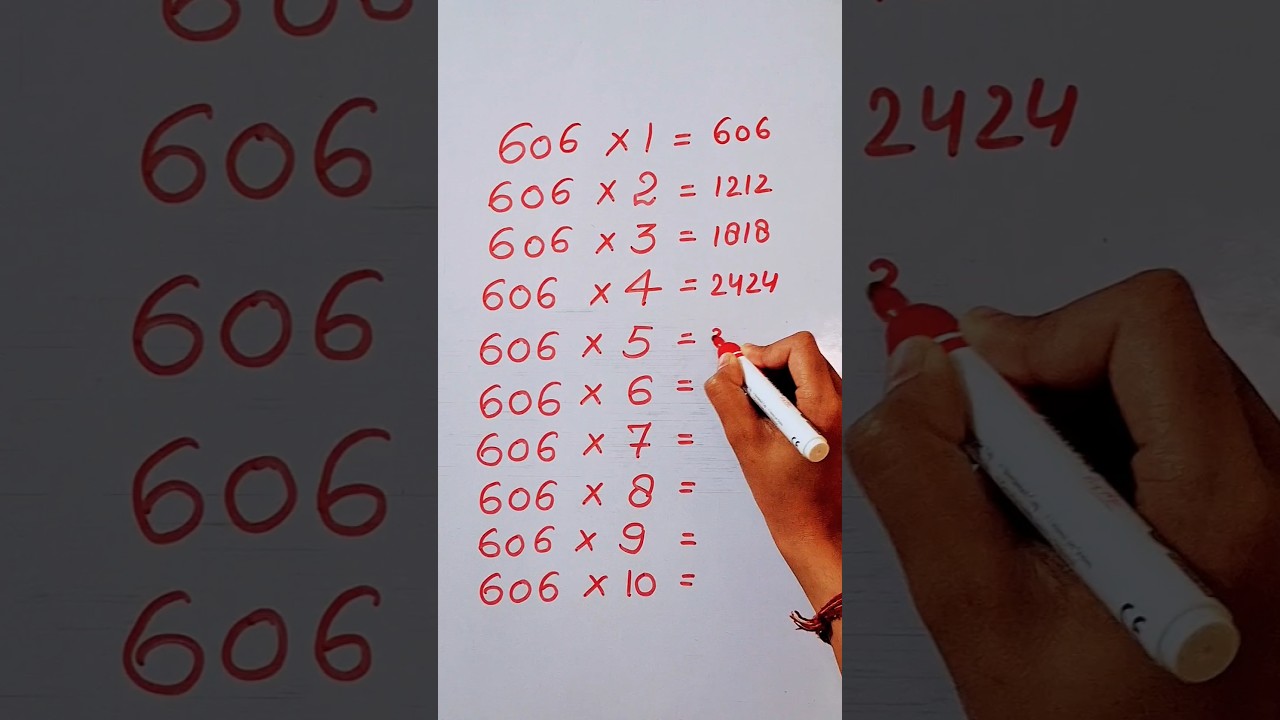 606 × 1 = 606
606 × 2 = 1212
606 × 3 = 1818
606 × 4 = 2424
606 × 5 =
606 × 6 =
606 × 7 =
606 × 8 =
606 × 9 =
606 × 10 =